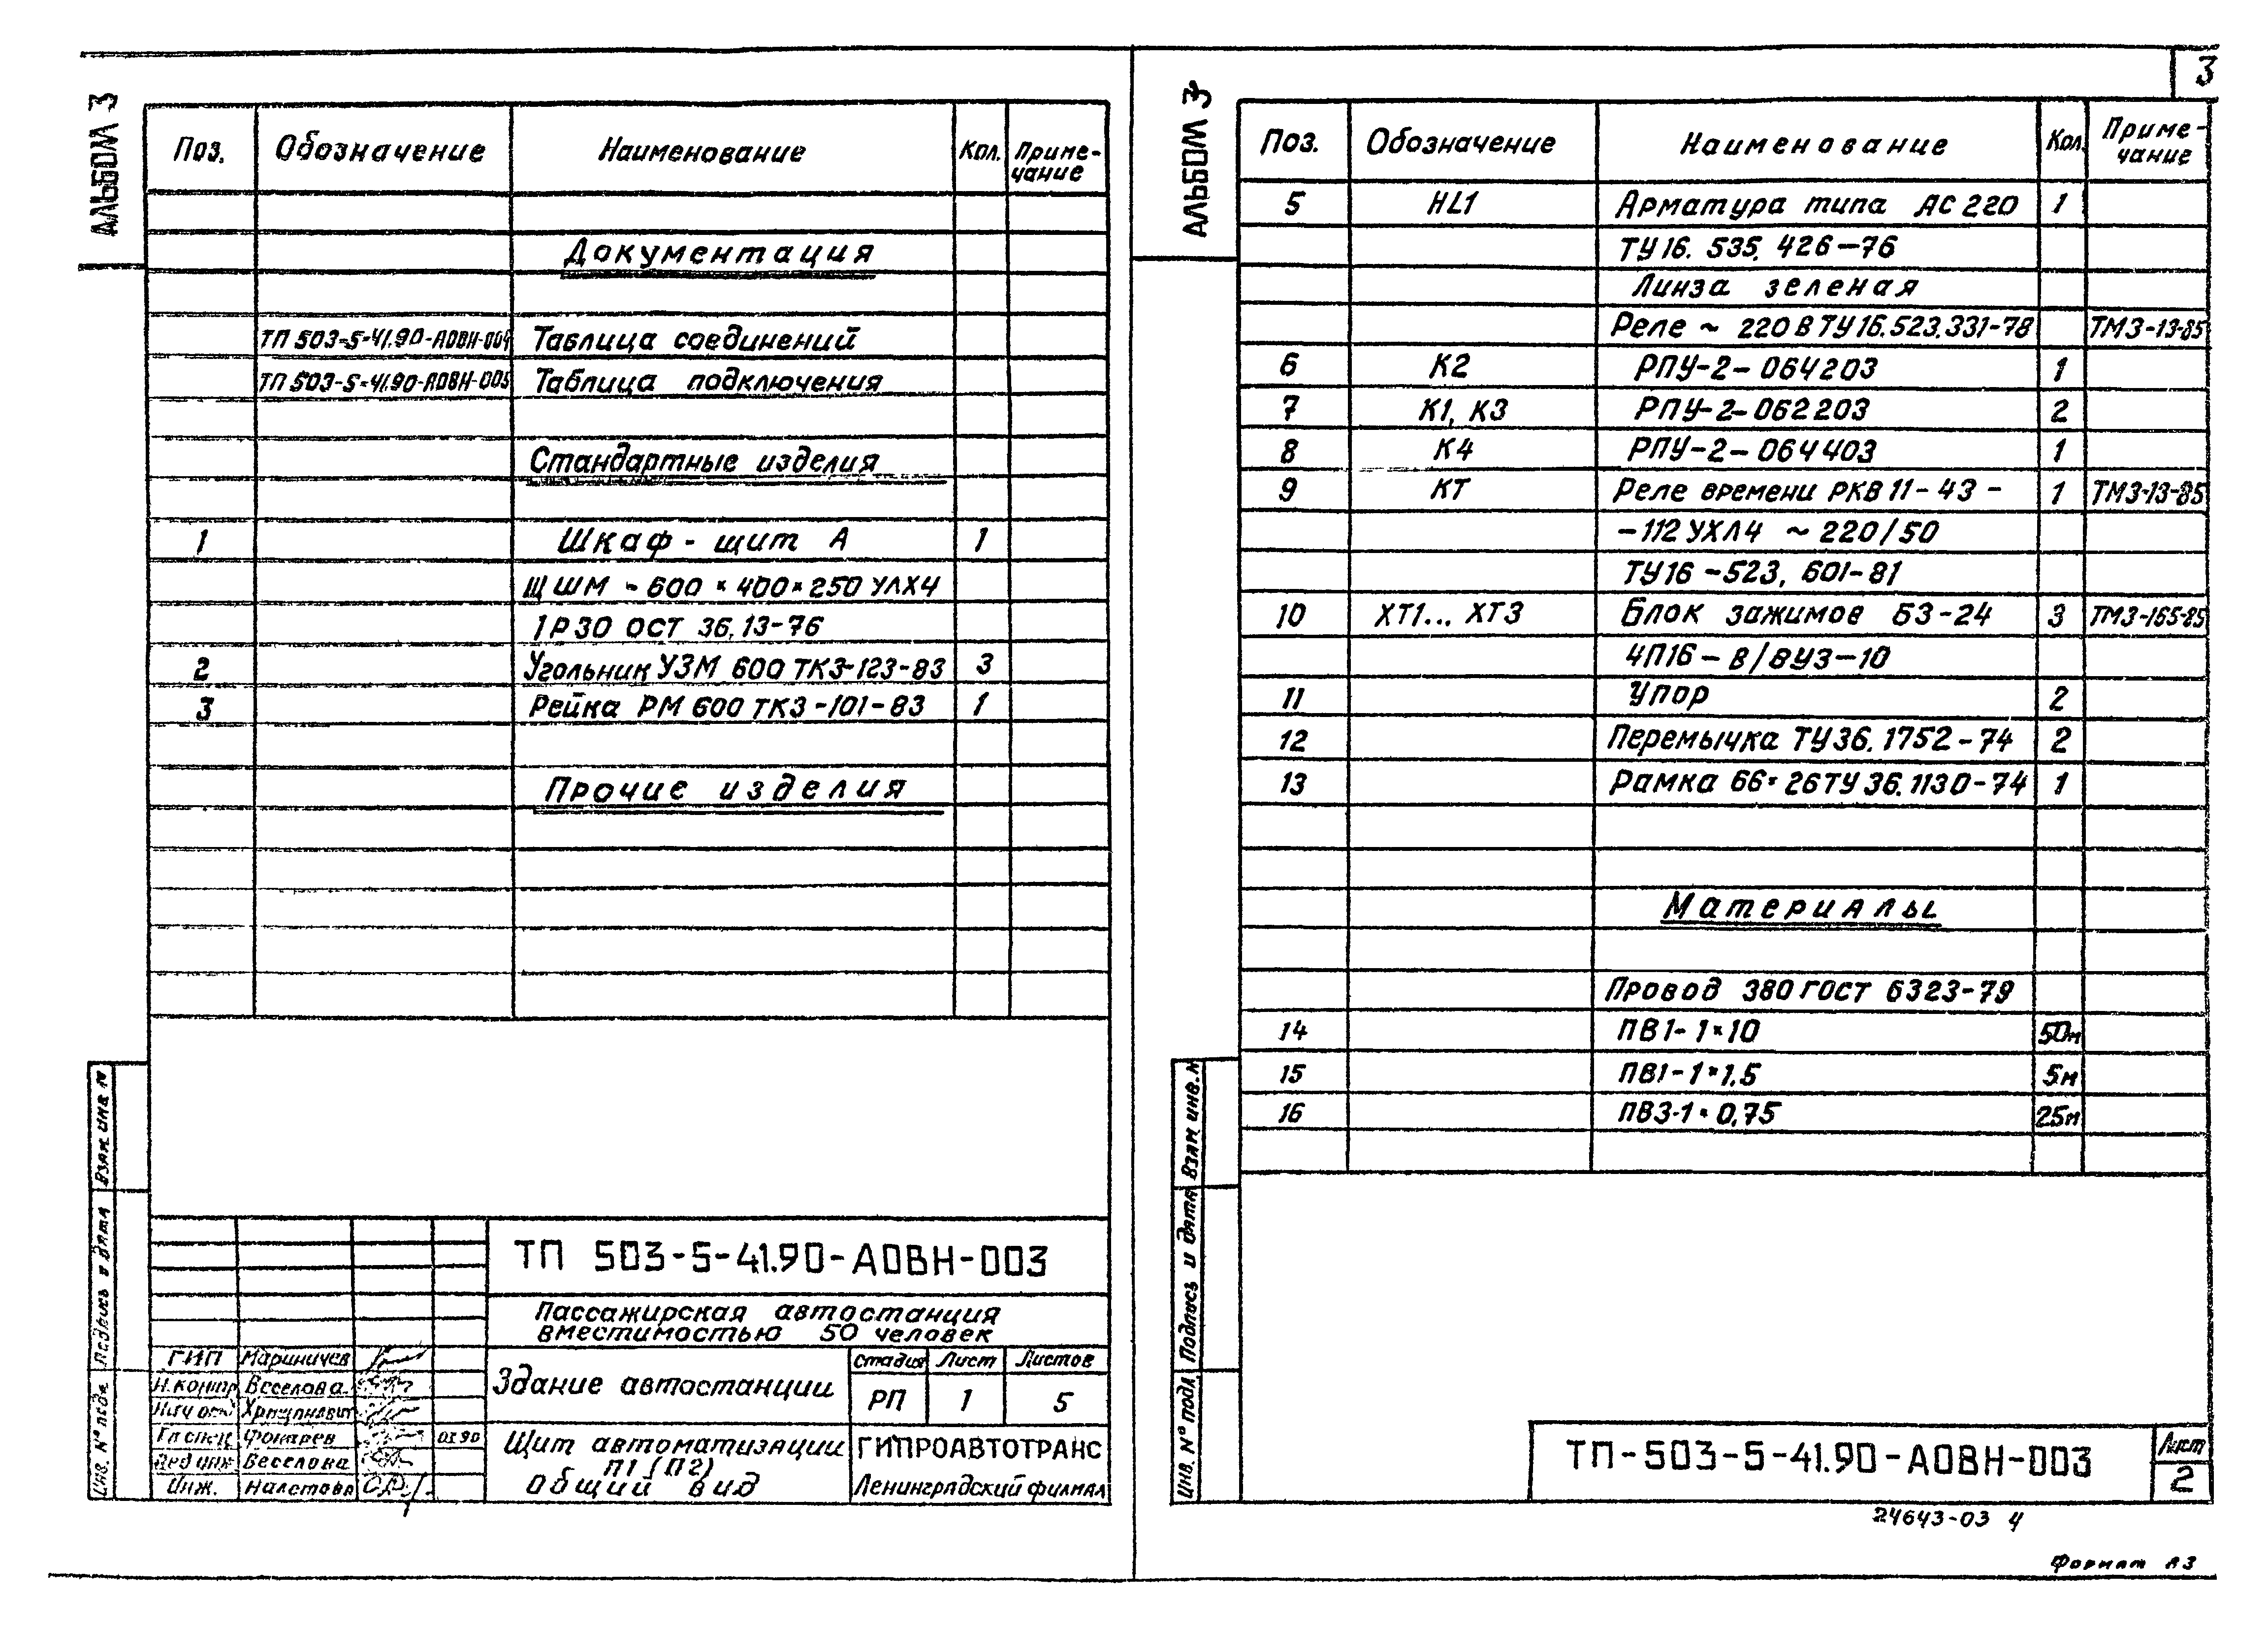 АЛЬБОМ 3
Поз. Обозначение Наименование Кол. Приме-
чание
Документация
ТП 503-5-41.90-АОВН-004 Таблица соединений
ТП 503-5-41.90-АОВН-005 Таблица подключения
Стандартные изделия
1 Шкаф - щит А 1
ЩШМ - 600 × 400 × 250 УЛХ4
1Р30 ОСТ 36.13-76
2 Угольник УЗМ 600 ТК3-123-83 3
3 Рейка РМ 600 ТК3-101-83 1
Прочие изделия
Взам инв N
Подпись и дата
Инв. N° подл.
ТП 503-5-41.90-АОВН-003
Пассажирская автостанция
вместимостью 50 человек
ГИП Мариничев
Н.контр Веселова
Нач отд
Гл спец Фонарев 03.90
Вед инж Веселова
Инж.
Здание автостанции
Стадия Лист Листов
РП 1 5
Щит автоматизации
П1 (П2)
общий вид
ГИПРОАВТОТРАНС
Ленинградский филиал
3
АЛЬБОМ 3
Поз. Обозначение Наименование Кол. Приме-
чание
5 HL1 Арматура типа АС 220 1
ТУ16. 535. 426-76
Линза зеленая
Реле ~ 220 В ТУ16.523.331-78 ТМ3-13-85
6 К2 РПУ-2-064203 1
7 К1, К3 РПУ-2-062203 2
8 К4 РПУ-2-064403 1
9 КТ Реле времени РКВ 11-43- 1 ТМ3-13-85
-112 УХЛ4 ~ 220/50
ТУ16-523, 601-81
10 ХТ1... ХТ3 Блок зажимов БЗ-24 3 ТМ3-165-85
4П16-В/ВУ3-10
11 Упор 2
12 Перемычка ТУ36.1752-74 2
13 Рамка 66×26 ТУ 36.1130-74 1
Материалы
Провод 380 ГОСТ 6323-79
14 ПВ1-1×10 50м
15 ПВ1-1×1.5 5м
16 ПВ3-1×0,75 25м
Взам инв. N
Подпись и дата
Инв. N° подл
ТП-503-5-41.90-АОВН-003
Лист
2
24643-03 4
Формат А3